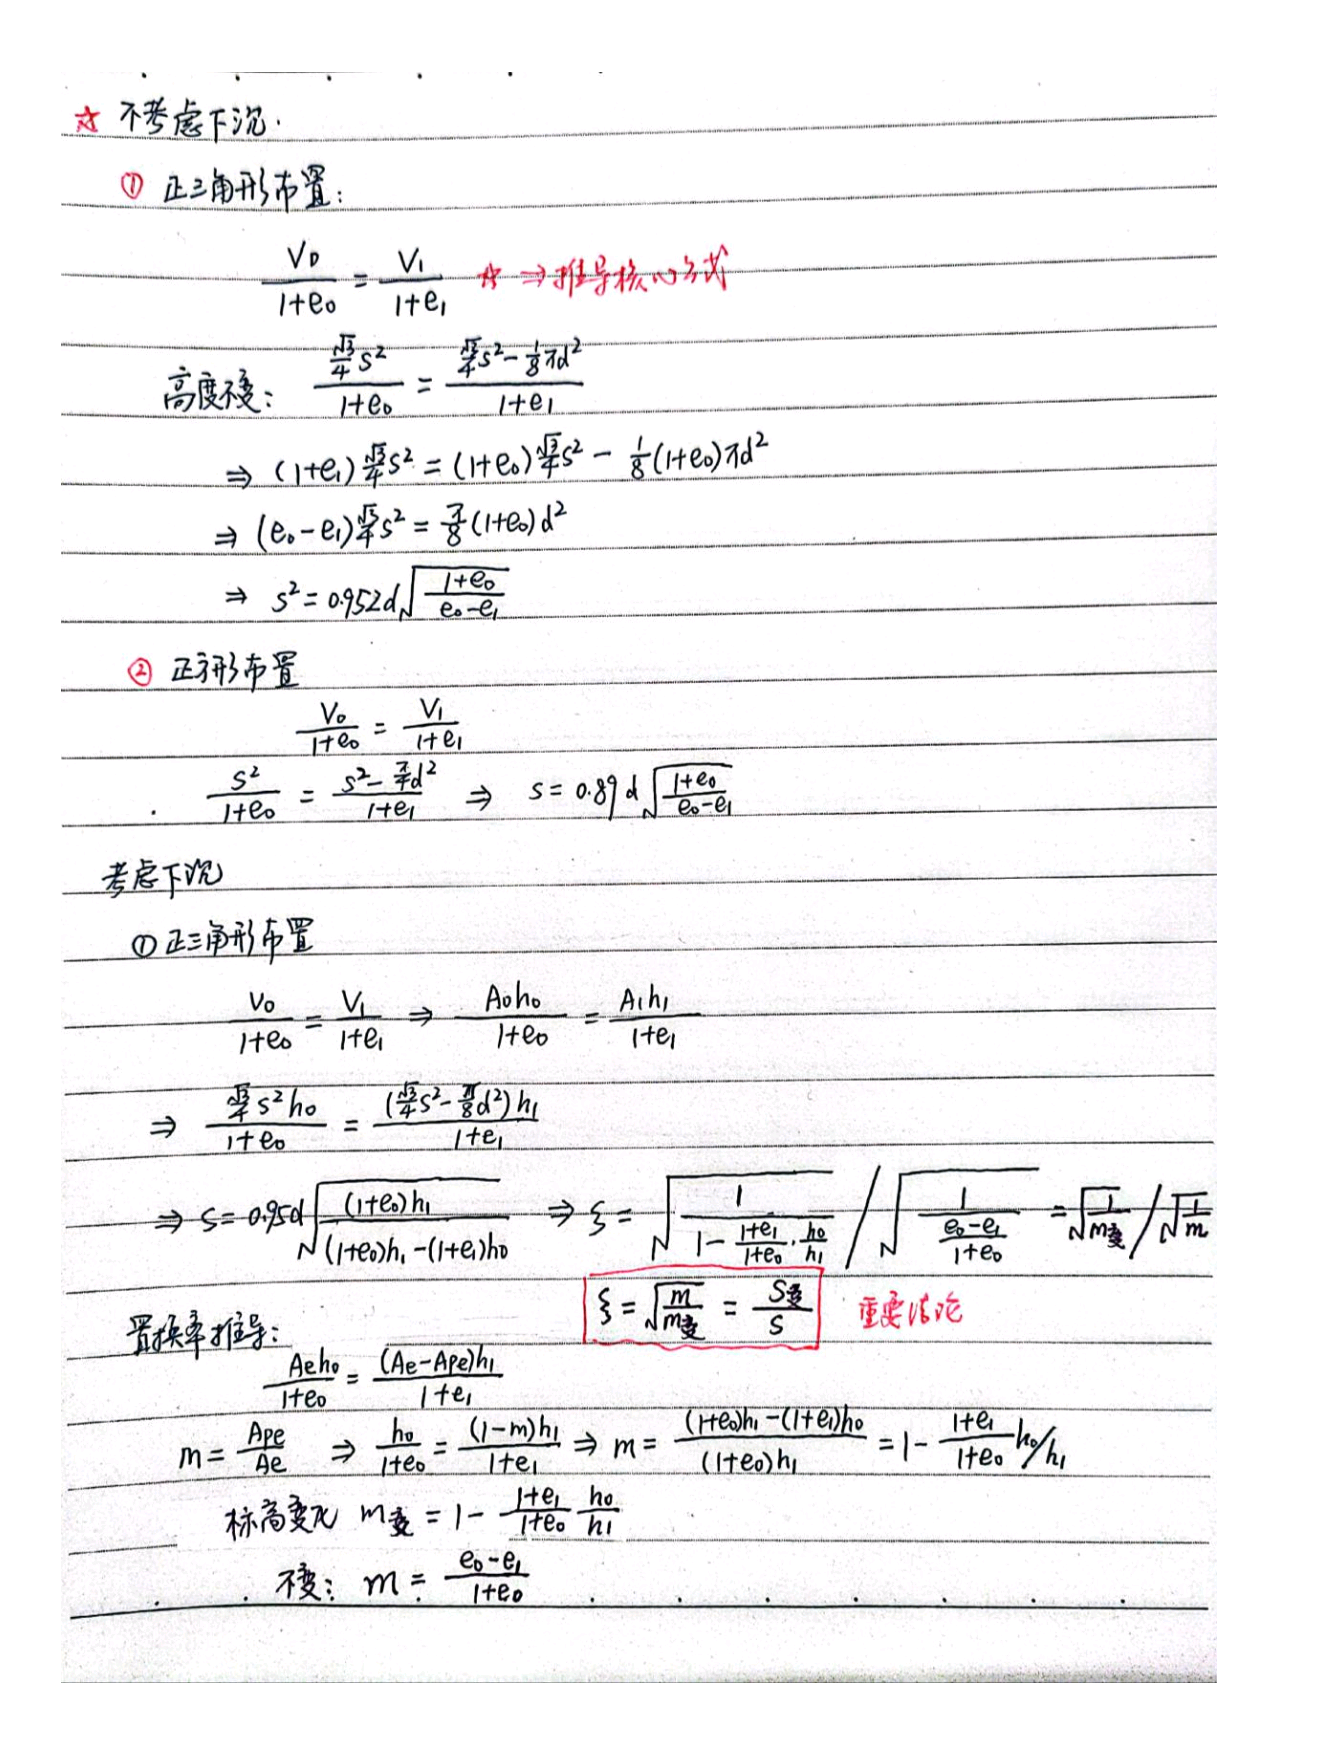 ☆ 不考虑下沉.
① 正三角形布置:
V₀/(1+e₀) = V₁/(1+e₁) ☆ ⇒推导核心方式
高度不变: (√3/4 s²)/(1+e₀) = (√3/4 s² - 1/8 πd²)/(1+e₁)
⇒ (1+e₁) √3/4 s² = (1+e₀) √3/4 s² - 1/8 (1+e₀) πd²
⇒ (e₀-e₁) √3/4 s² = π/8 (1+e₀) d²
⇒ s² = 0.952d √((1+e₀)/(e₀-e₁))
② 正方形布置
V₀/(1+e₀) = V₁/(1+e₁)
s²/(1+e₀) = (s² - π/4 d²)/(1+e₁) ⇒ s = 0.89 d √((1+e₀)/(e₀-e₁))
考虑下沉
① 正三角形布置
V₀/(1+e₀) = V₁/(1+e₁) ⇒ A₀h₀/(1+e₀) = A₁h₁/(1+e₁)
⇒ (√3/4 s² h₀)/(1+e₀) = ((√3/4 s² - π/8 d²) h₁)/(1+e₁)
⇒ s = 0.95d √((1+e₀)h₁/((1+e₀)h₁-(1+e₁)h₀)) ⇒ ξ = √(1/(1 - (1+e₁)/(1+e₀) · h₀/h₁)) / √(1/((e₀-e₁)/(1+e₀))) = √(1/m变) / √(1/m)
ξ = √(m/m变) = S变/S 重要结论
置换率推导:
Aeh₀/(1+e₀) = (Ae-Ape)h₁/(1+e₁)
m = Ape/Ae ⇒ h₀/(1+e₀) = (1-m)h₁/(1+e₁) ⇒ m = ((1+e₀)h₁-(1+e₁)h₀)/((1+e₀)h₁) = 1 - (1+e₁)/(1+e₀) h₀/h₁
标高变化 m变 = 1 - (1+e₁)/(1+e₀) h₀/h₁
不变: m = (e₀-e₁)/(1+e₀)